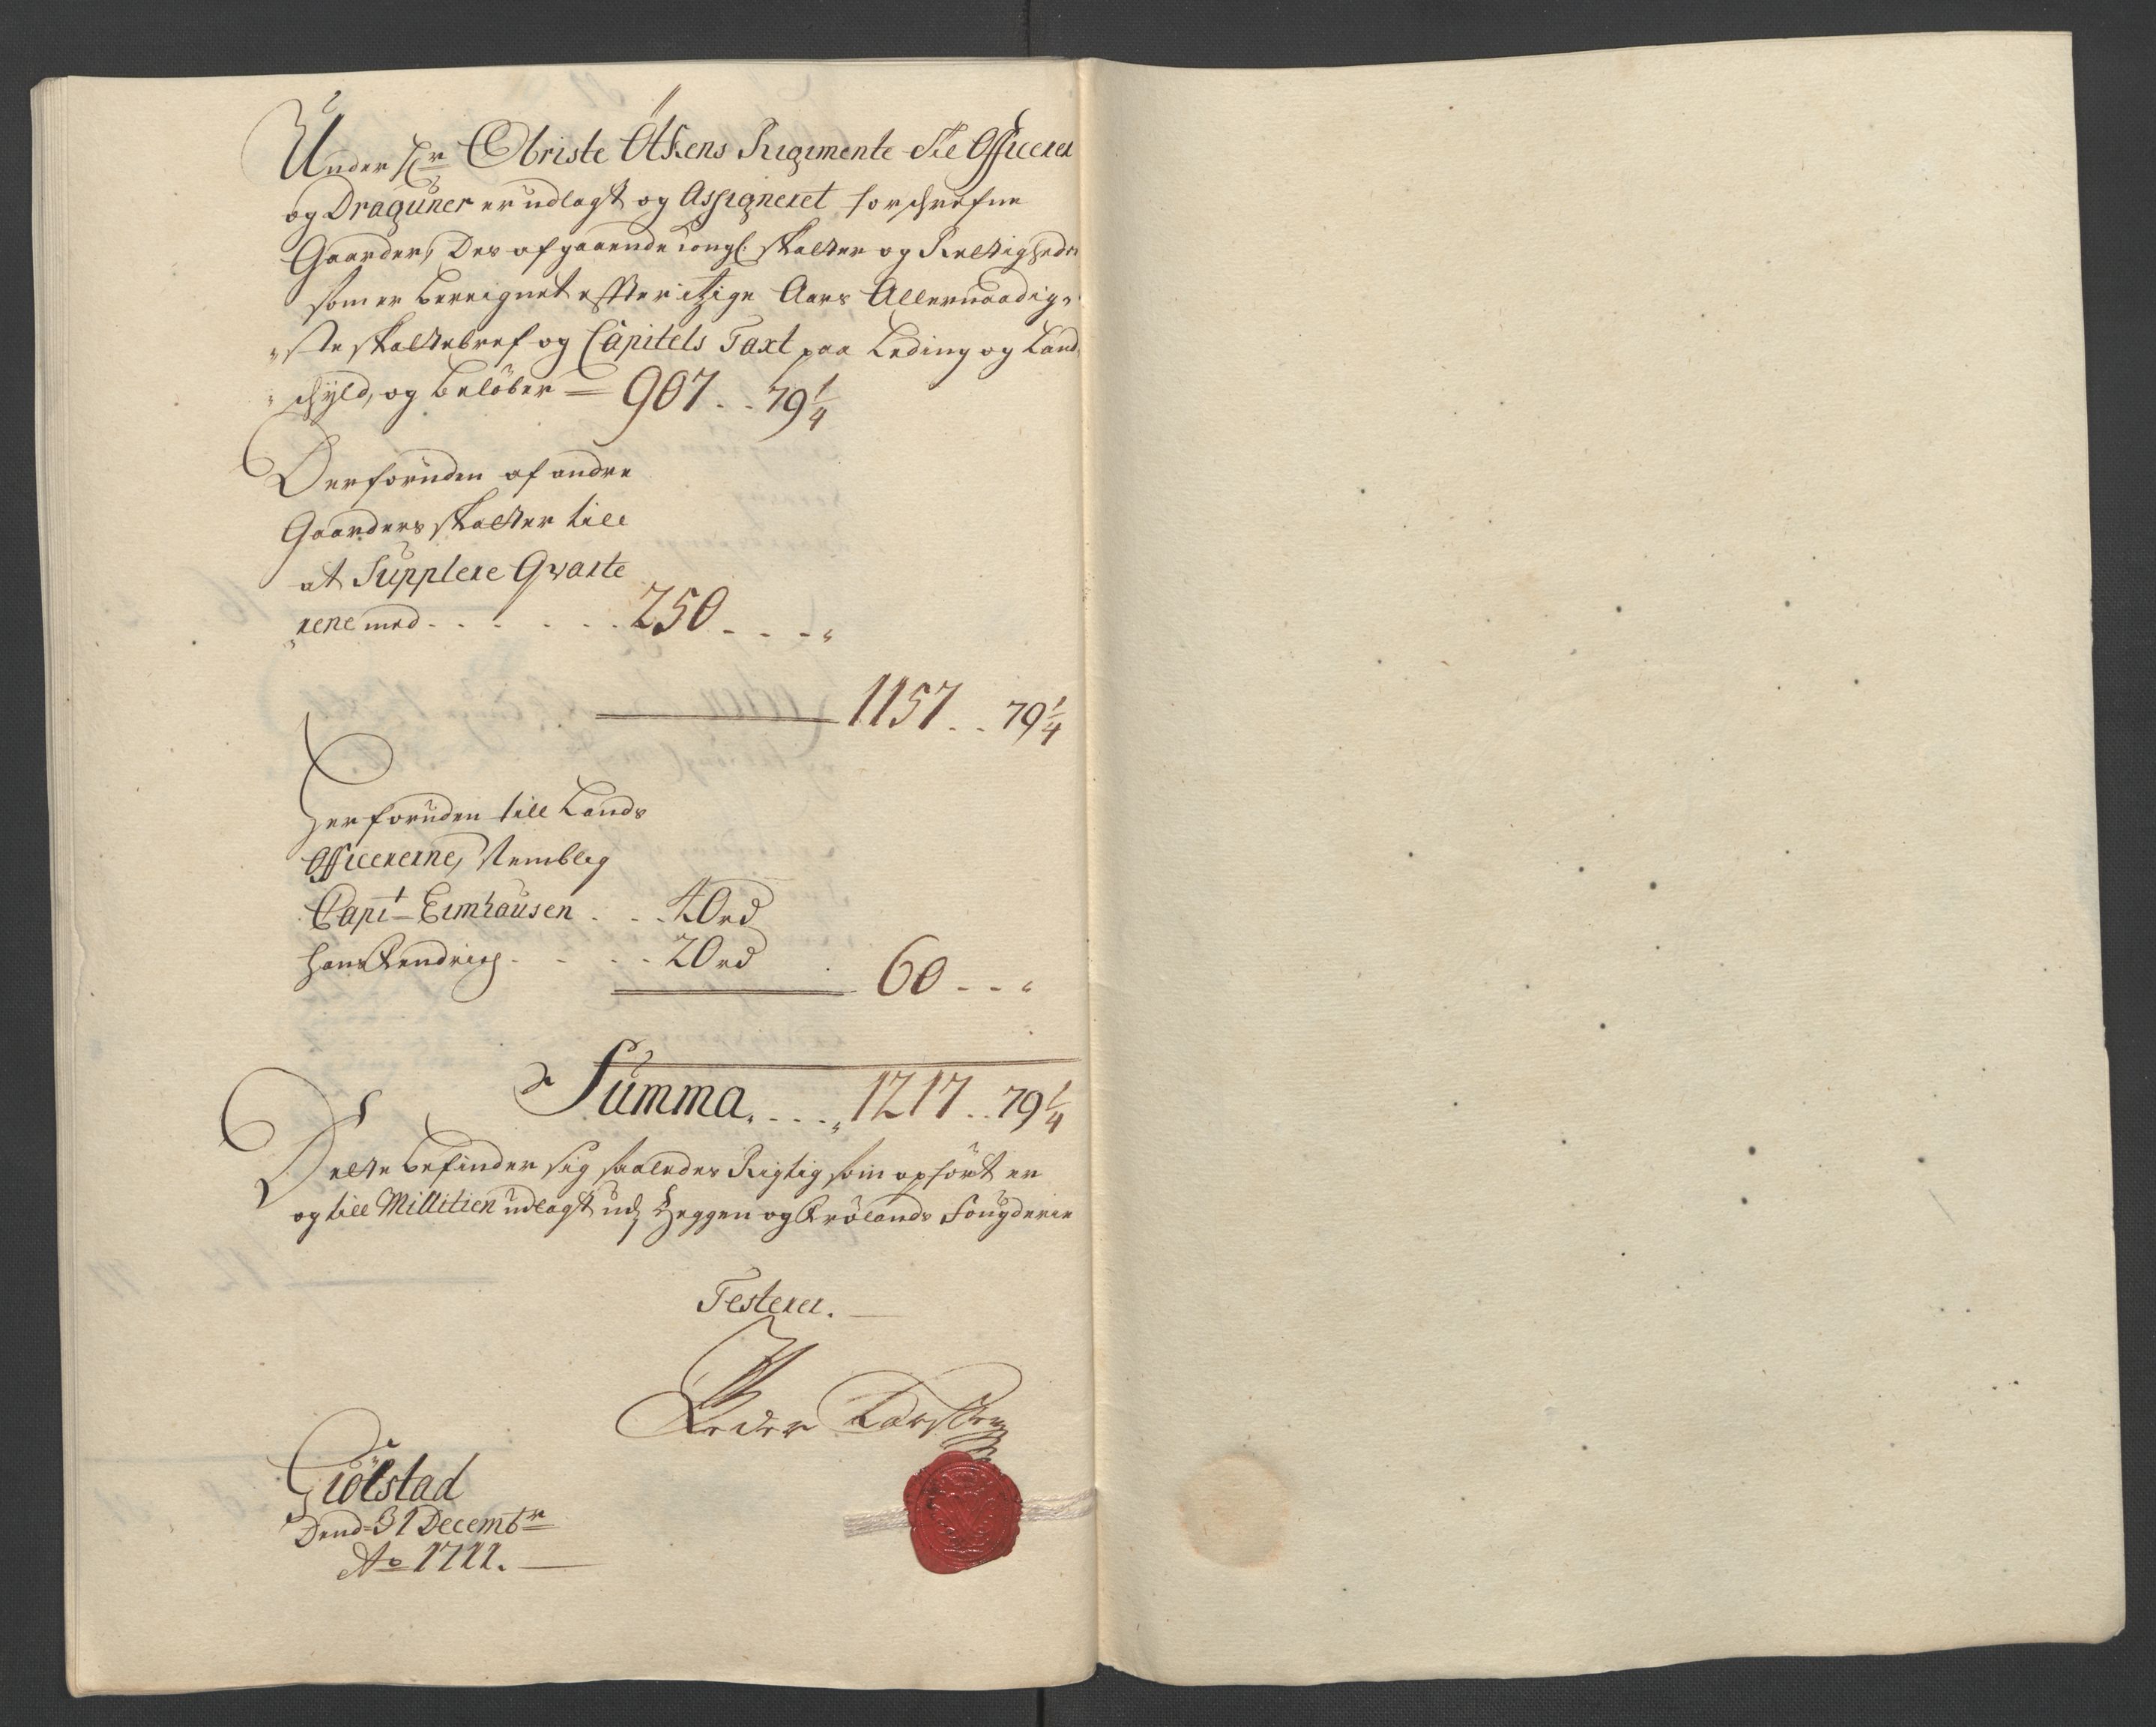 Under Hr Obriste Ötkens Regimente Ste Officerer
og Dragúner er udlagt og Assigneret forschrefne
Gaarder, Des afgaaende kongl: skatter og Rettigheder
som er bereignet effter itzige Aars Allernaadig„
„ste skattebref og Capitels Taxt paa Leding og Land„
„schyld, og beløber = 907 . . 79 1/4
Derforuden af andre
Gaarders skatter till
at Supplere Qvarte
„rene med . . . . . . 250 . . . „
1157 . . 79 1/4
Herforuden till Lands
Officererne, Nemblig
Capt Eimhausen . . . 40 rd
Hans Hendrich . . . . 20 rd 60 . . „
Summa . . . „ 1217 . . 79 1/4
Dette befinder sig saaledes Rigtig som opført er
og till Millitien udlagt udj Heggen og Frølands Fougderie
Testerer.
Peder Karsten
Giölstad
Dend 31 Decembr
Ao 1711.